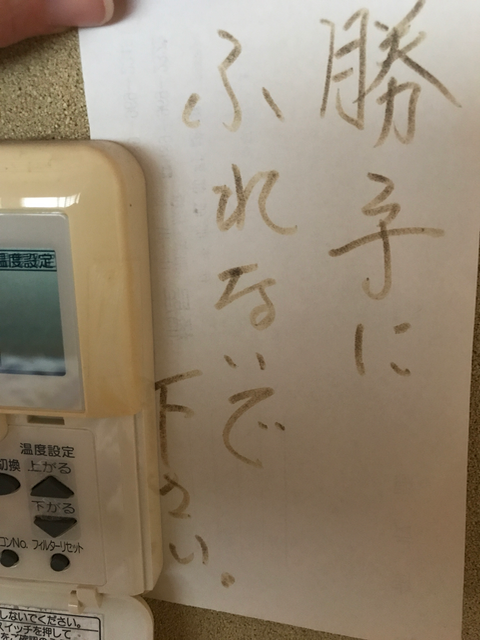 勝手に
ふれないで
下さい。
温度設定
温度設定
切換 上がる
下がる
コンNo. フィルターリセット
しないでください。
スイッチを押して